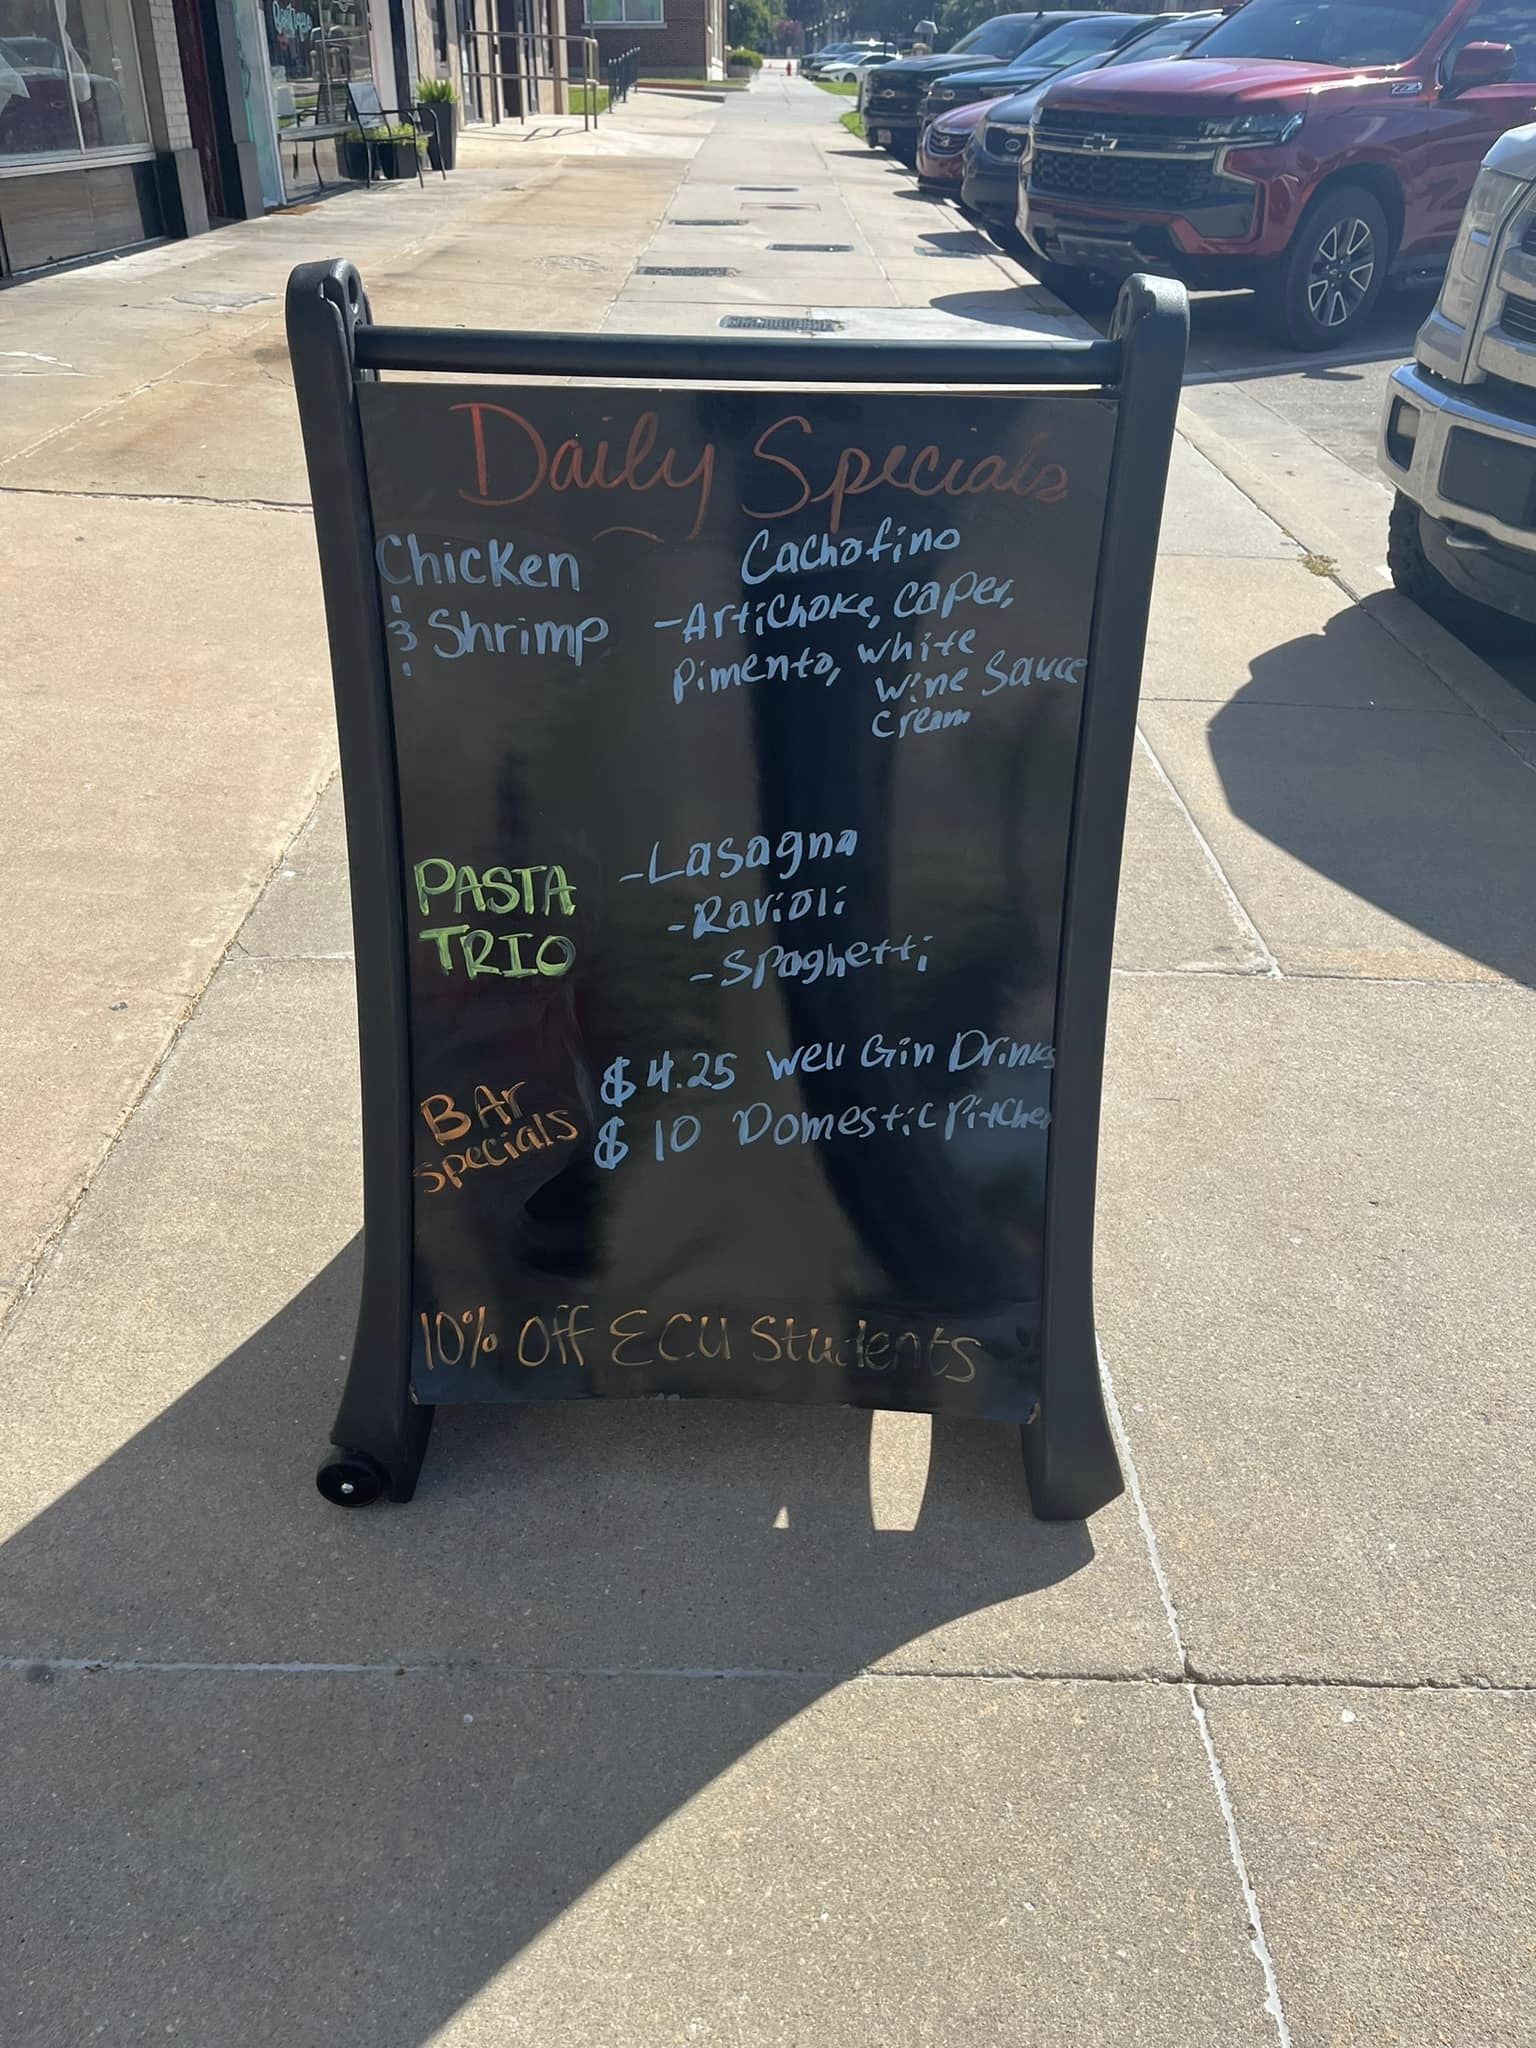 Daily Specials
Chicken
& Shrimp
Cachofino
-Artichoke, caper,
pimento, white
wine sauce
cream
PASTA
TRIO
-Lasagna
-Ravioli
-Spaghetti
BAr
specials
$4.25 well Gin Drinks
$10 Domestic pitcher
10% Off ECU Students